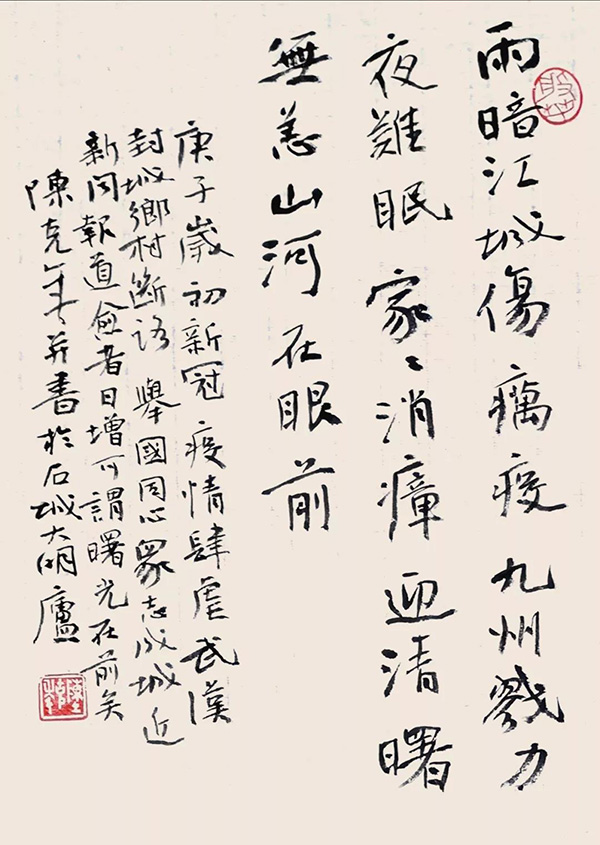 雨暗江城傷癘疫九州戮力
夜難眠家〻消瘴迎清曙
無恙山河在眼前
庚子歲初新冠疫情肆虐武漢
封城鄉村斷路舉國同心眾志成城近
新聞報道愈者日增可謂曙光在前矣
陳克年並書於石城大明廬